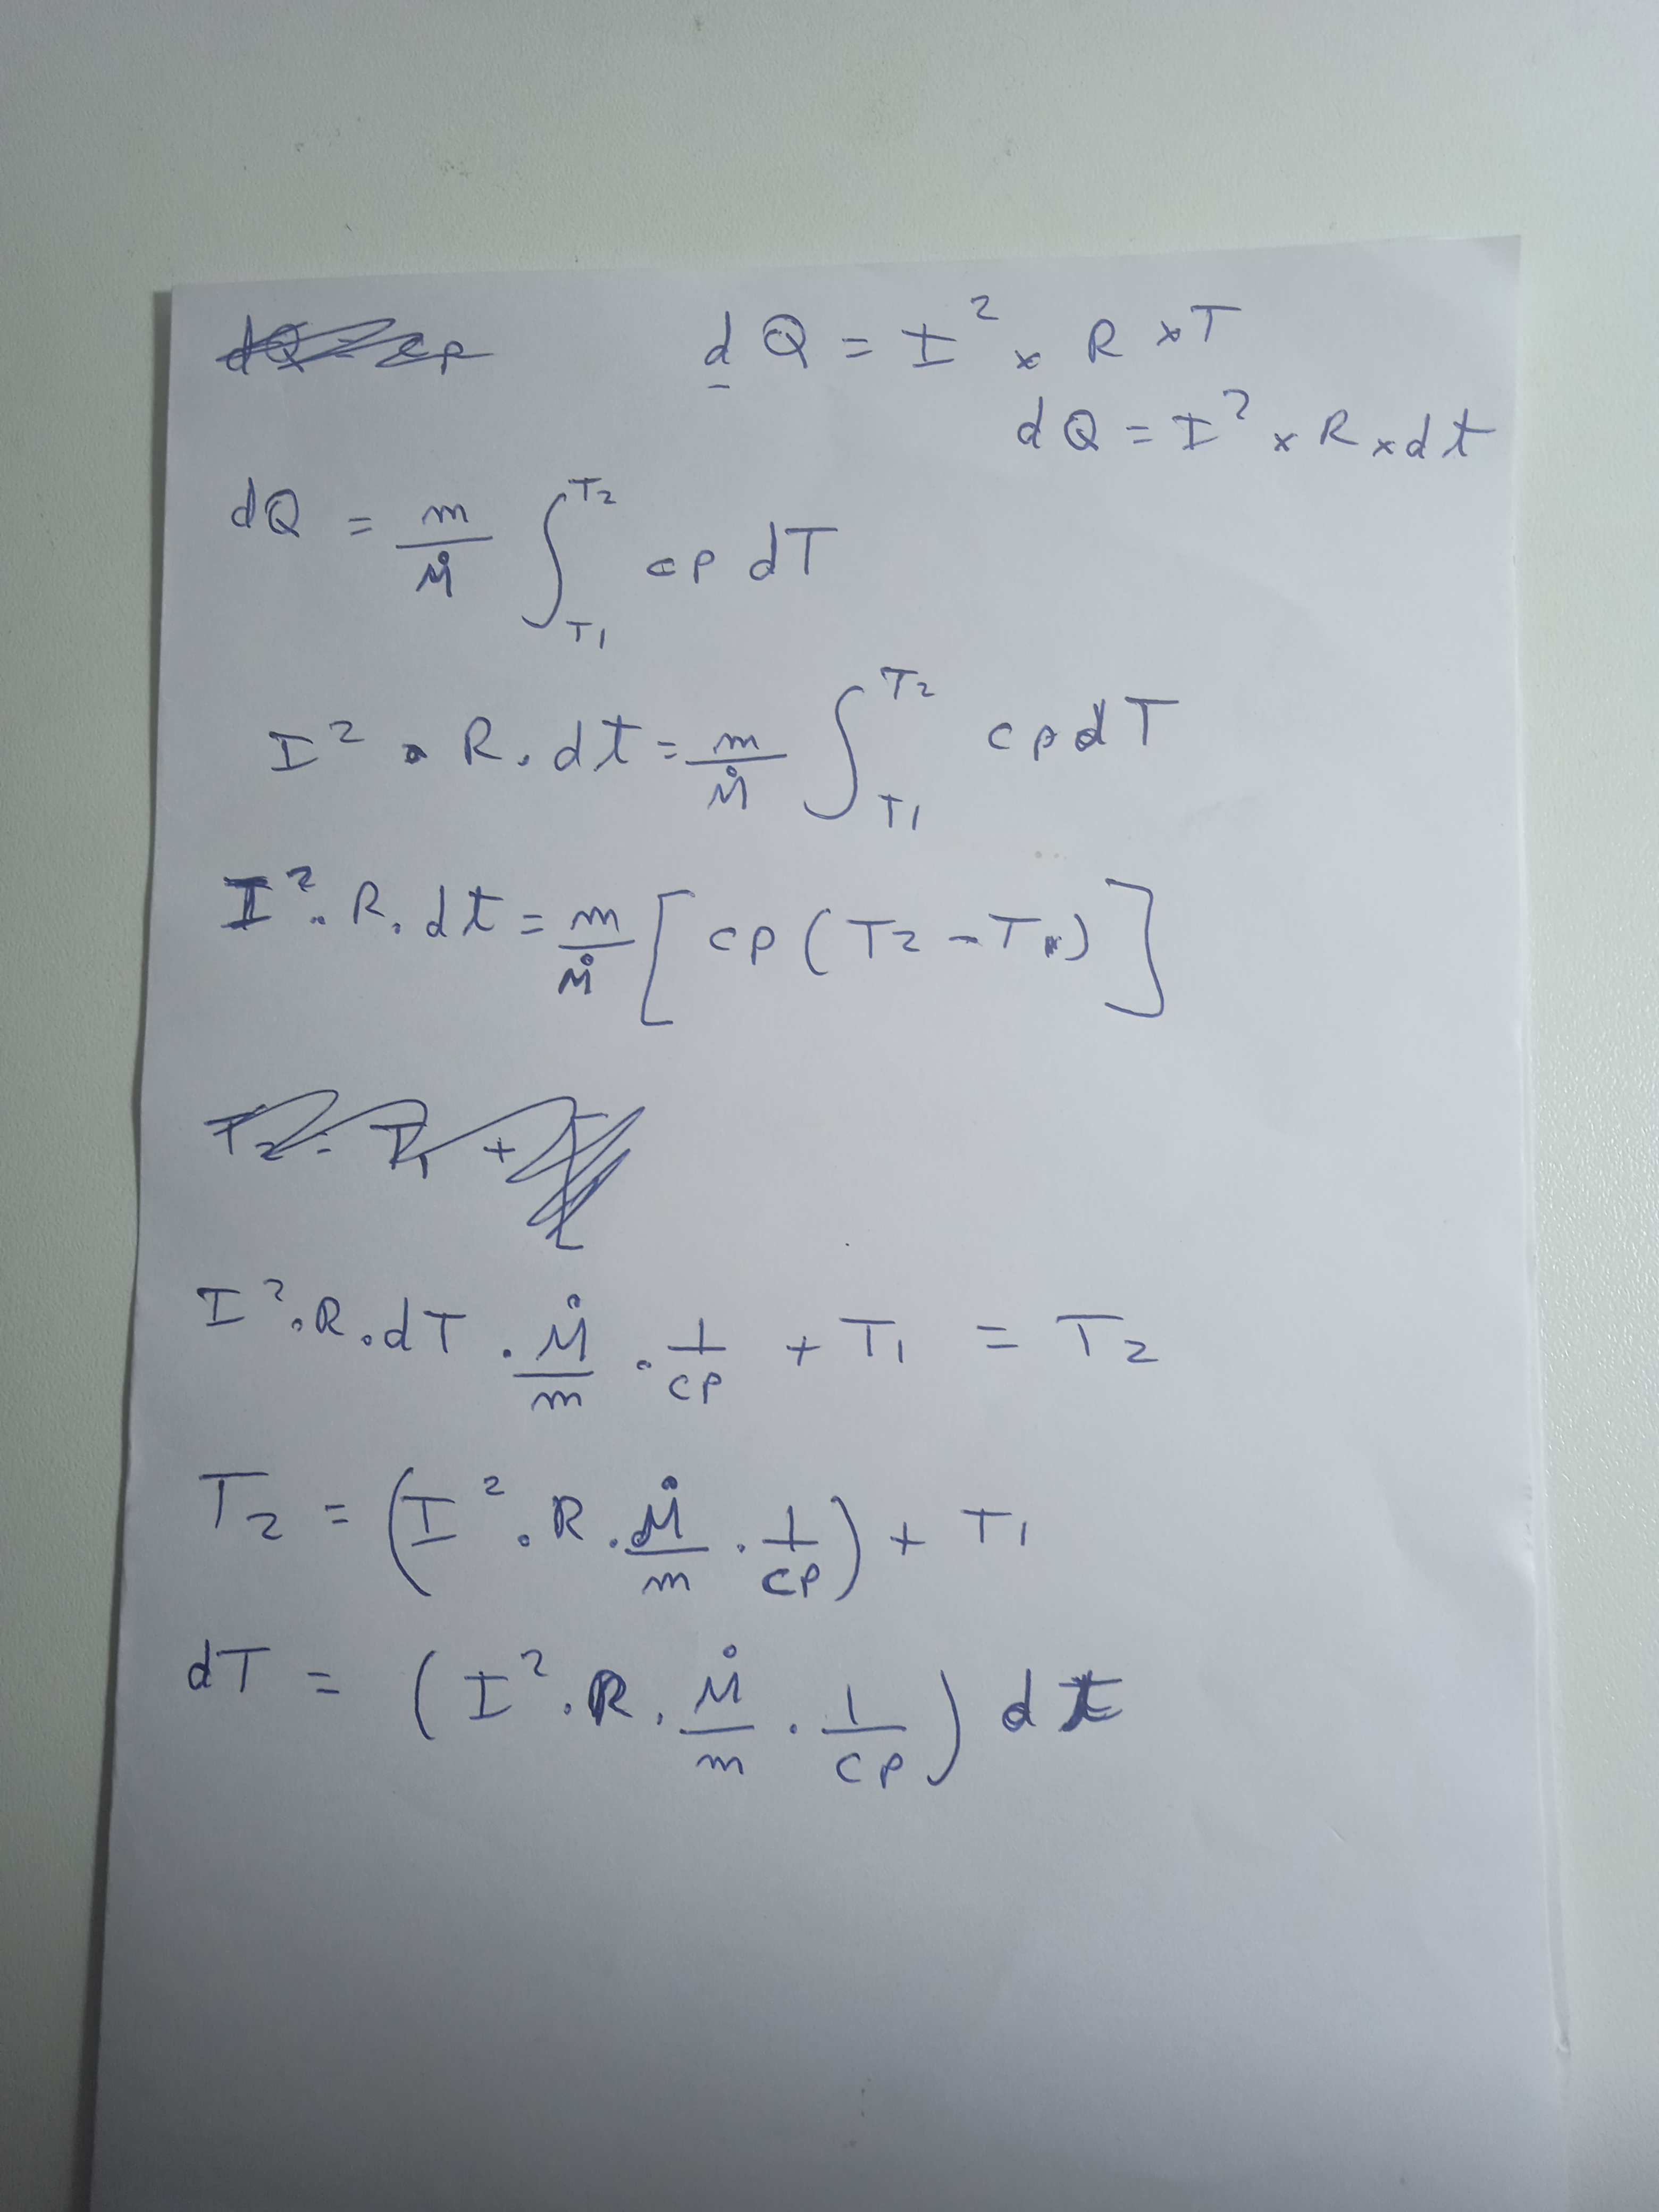 dQ = cp
dQ = I² × R × T
dQ = I² × R × dt
dQ = m/Ṁ ∫T1T2 cp dT
I² . R . dt = m/Ṁ ∫T1T2 cp dT
I² . R . dt = m/Ṁ [cp (T2 - T1)]
T2 = T1 +
I² . R . dT . Ṁ/m . 1/cp + T1 = T2
T2 = (I² . R . Ṁ/m . 1/cp) + T1
dT = (I² . R . Ṁ/m . 1/cp) dt